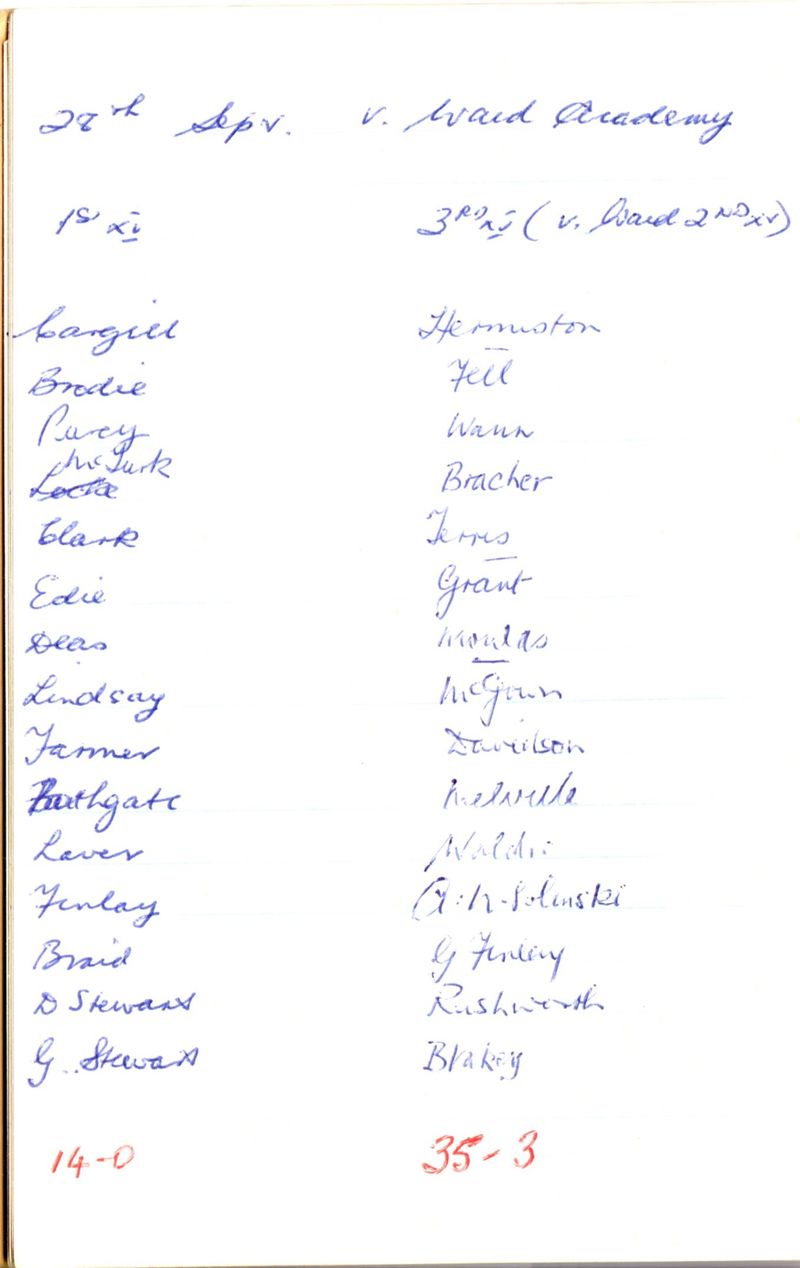 28th Sept. v. Waid Academy
1st XV
3RD XV (v. Waid 2ND XV)
Cargill
Brodie
Purcy
McTurk
Clark
Edie
Deas
Lindsay
Farmer
Bathgate
Laver
Finlay
Braid
D Stewart
G. Stewart
14-0
Hermiston
Fell
Wann
Bracher
Ferris
Grant
Moulds
McGown
Davidson
Melville
Waldie
Polinski
G Finlay
Rushworth
Blakey
35-3